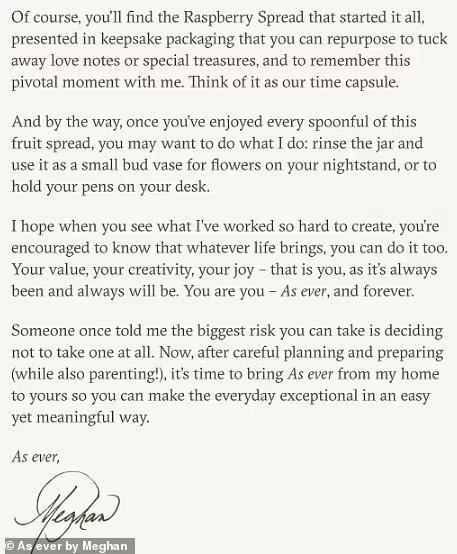 Of course, you'll find the Raspberry Spread that started it all,
presented in keepsake packaging that you can repurpose to tuck
away love notes or special treasures, and to remember this
pivotal moment with me. Think of it as our time capsule.
And by the way, once you've enjoyed every spoonful of this
fruit spread, you may want to do what I do: rinse the jar and
use it as a small bud vase for flowers on your nightstand, or to
hold your pens on your desk.
I hope when you see what I've worked so hard to create, you're
encouraged to know that whatever life brings, you can do it too.
Your value, your creativity, your joy – that is you, as it's always
been and always will be. You are you – As ever, and forever.
Someone once told me the biggest risk you can take is deciding
not to take one at all. Now, after careful planning and preparing
(while also parenting!), it's time to bring As ever from my home
to yours so you can make the everyday exceptional in an easy
yet meaningful way.
As ever,
Meghan
© As ever by Meghan